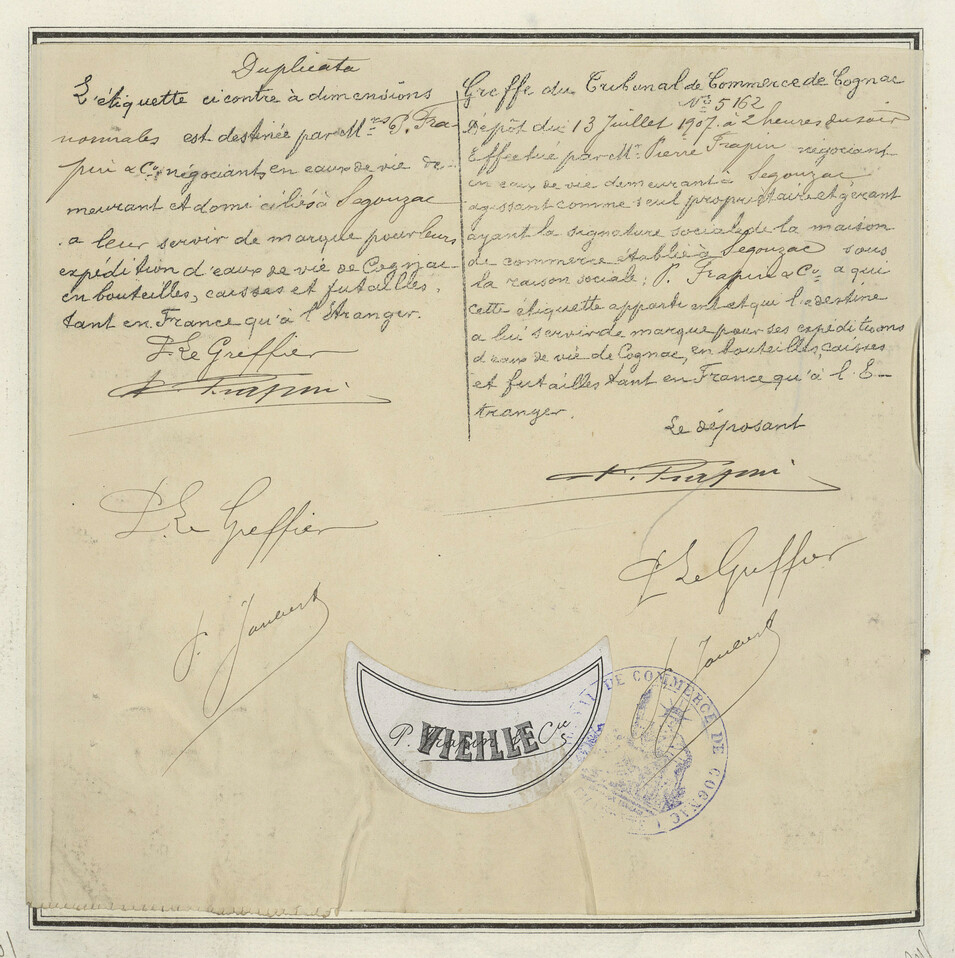 Duplicata
L'étiquette ci contre à dimensions
normales est destinée par Mrs P. Fra-
pin & Co, négociants en eaux de vie de-
meurant et domiciliés à Segonzac
a leur servir de marque pour leurs
expédition d'eaux de vie de Cognac
en bouteilles, caisses et futailles,
tant en France qu'à l'Etranger.
P. Le Greffier
P. Frapin
P. Le Greffier
P. Joubert
Greffe du Tribunal de Commerce de Cognac
No 5162
Dépôt du 13 Juillet 1907, à 2 heures du soir
Effectué par Mr. Pierre Frapin négociant
en eaux de vie demeurant à Segonzac
agissant comme seul propriétaire et gérant
ayant la signature sociale de la maison
de commerce établie à Segonzac sous
la raison sociale: P. Frapin & Co, a qui
cette étiquette appartient et qui l'a destine
a lui servir de marque pour ses expéditions
d'eaux de vie de Cognac, en bouteilles, caisses
et futailles tant en France qu'à l'E-
tranger.
Le déposant
P. Frapin
P. Le Greffier
Joubert
VIEILLE
P. Frapin & Cie
DE COMMERCE DE COGNAC